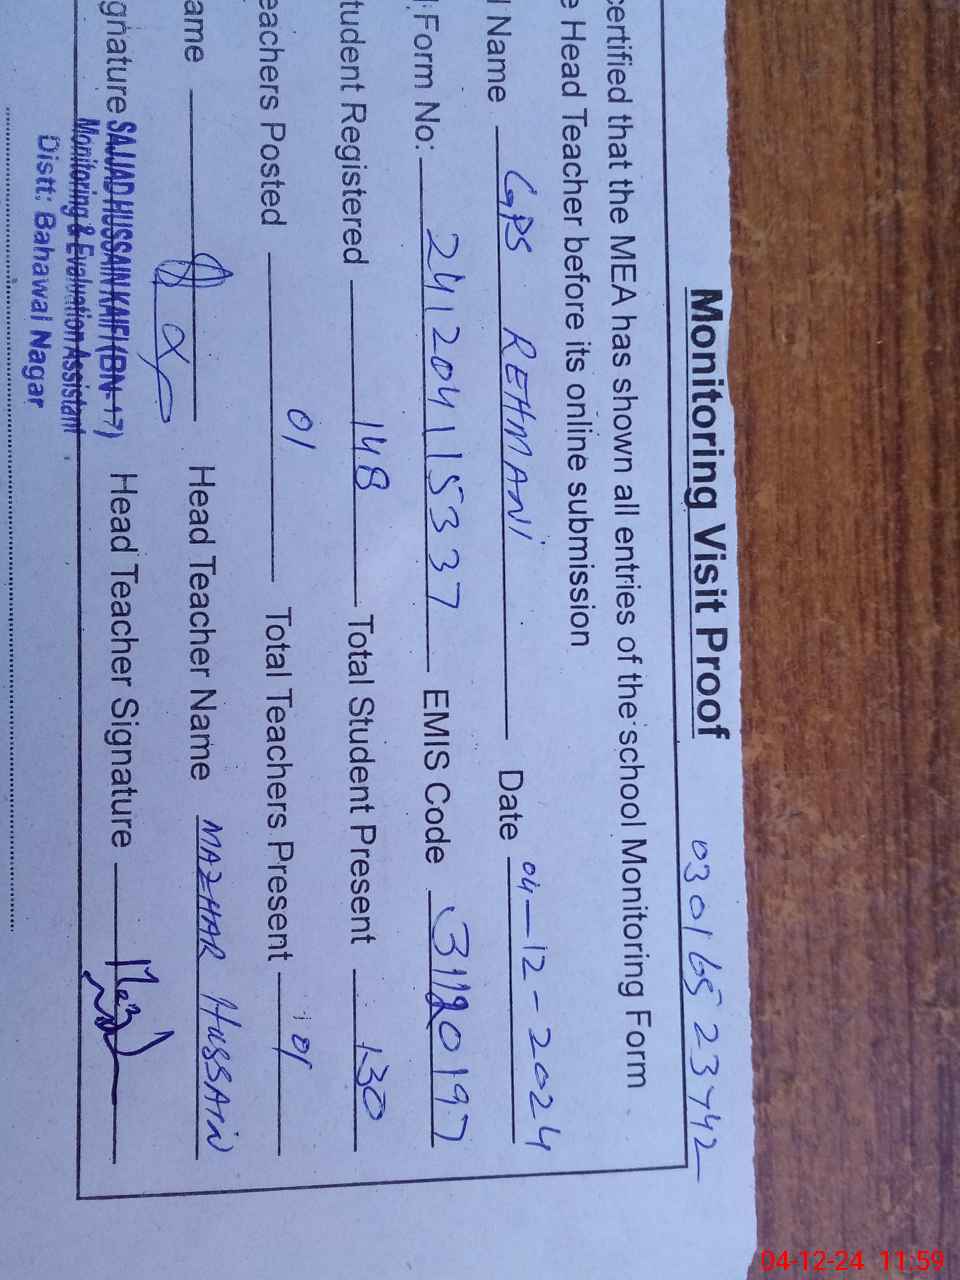 Monitoring Visit Proof 03016523442
certified that the MEA has shown all entries of the school Monitoring Form
e Head Teacher before its online submission
l Name GPS REHMANI Date 04-12-2024
: Form No: 241204115337 EMIS Code 31120197
tudent Registered 148 Total Student Present 130
eachers Posted 01 Total Teachers Present 01
ame Head Teacher Name MAZHAR HUSSAIN
gnature SAJJAD HUSSAIN KAIFI (BN-17) Head Teacher Signature
Monitoring & Evaluation Assistant
Distt: Bahawal Nagar
04-12-24 11:59